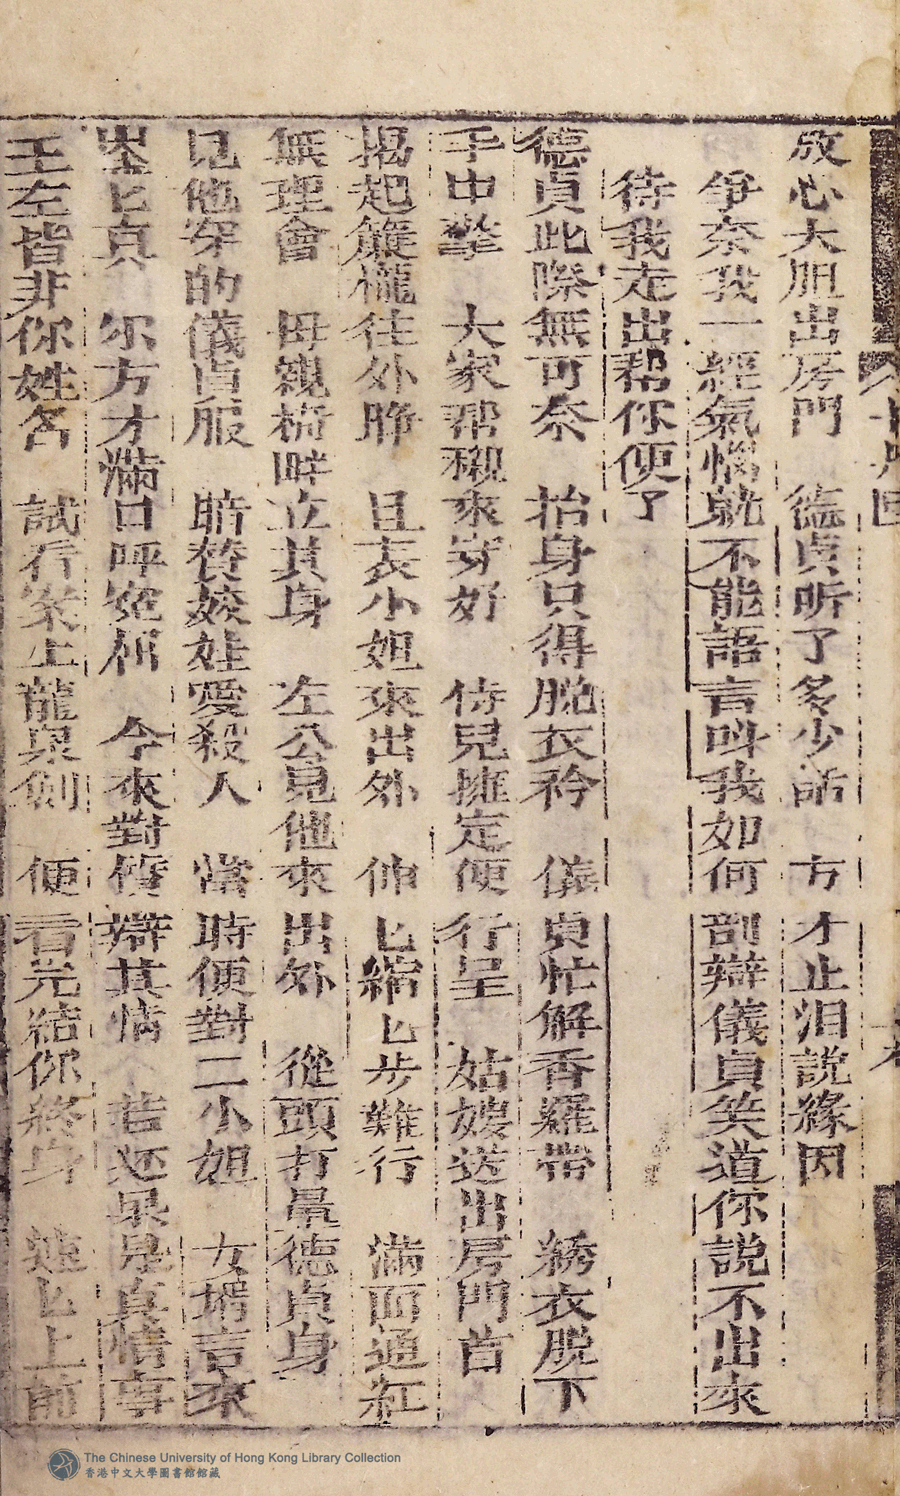 放心大胆出房門　德貞听了多少話　方才止泪說緣因
爭奈我一經氣惱就不能語言呌我如何剖辯儀貞笑道你說不出來
待我走出帮你便了
德貞此際無可奈　抬身只得脫衣衿　儀貞忙解香羅帶　綉衣脫下
手中擎　大家帮襯來穿好　侍兒擁定便行呈　姑嫂送出房門首
揭起簾櫳往外睁　且表小姐來出外　伸匕縮匕步難行　滿面通紅
無理會　母親椅畔立其身　左公見他來出外　從頭打量德貞身
見他穿的儀貞服　暗贊姣娃愛殺人　當時便對二小姐　女壻言來
豈匕真　尔方才滿口呼寃枉　今來對質辯其情　若还果是真情事
王左皆非你姓名　試看案上龍泉劍　便看完結你終身　速匕上前
The Chinese University of Hong Kong Library Collection
香港中文大學圖書館館藏